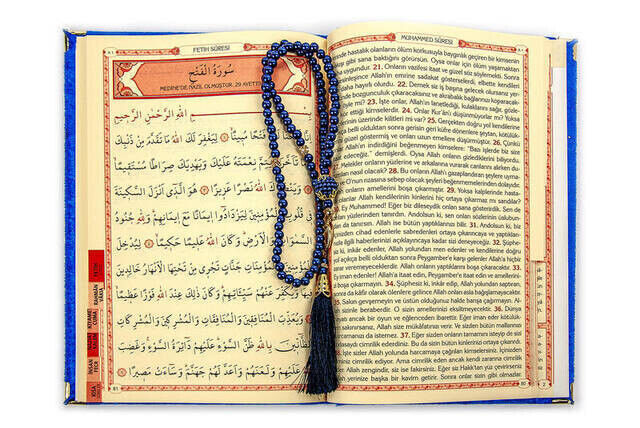 FETİH SÛRESİ
سُورَةُ الْفَتْحِ
MEDİNE'DE NAZİL OLMUŞTUR. 29 AYETTİ
اللهِ الرَّحْمٰنِ الرَّحِيمِ
فَتْحًا مُبِينًا ۝ لِيَغْفِرَ لَكَ اللّٰهُ مَا تَقَدَّمَ مِنْ ذَنْبِكَ
تَأَخَّرَ نِعْمَتَهُ عَلَيْكَ وَيَهْدِيَكَ صِرَاطًا مُسْتَقِيمًا
وَيَنْصُرَكَ اللّٰهُ نَصْرًا عَزِيزًا ۝ هُوَ الَّذِي أَنْزَلَ السَّكِينَةَ
فِي قُلُوبِ الْمُؤْمِنِينَ لِيَزْدَادُوا إِيمَانًا مَعَ إِيمَانِهِمْ وَلِلّٰهِ جُنُودُ
السَّمٰوَاتِ وَالْأَرْضِ وَكَانَ اللّٰهُ عَلِيمًا حَكِيمًا ۝ لِيُدْخِلَ
جَنَّاتٍ تَجْرِي مِنْ تَحْتِهَا الْأَنْهَارُ خَالِدِينَ
وَيُكَفِّرَ عَنْهُمْ سَيِّئَاتِهِمْ وَكَانَ ذٰلِكَ عِنْدَ اللّٰهِ فَوْزًا عَظِيمًا
وَيُعَذِّبَ الْمُنَافِقِينَ وَالْمُنَافِقَاتِ وَالْمُشْرِكِينَ وَالْمُشْرِكَاتِ
بِاللّٰهِ ظَنَّ السَّوْءِ عَلَيْهِمْ دَائِرَةُ السَّوْءِ وَغَضِبَ
عَلَيْهِمْ وَلَعَنَهُمْ وَأَعَدَّ لَهُمْ جَهَنَّمَ وَسَاءَتْ مَصِيرًا
81
FETİH
RAHMÂN
VÂKIA
CUMA
MÜLK
İNSAN
KISA
MUHAMMED SÛRESİ
hastalık olanların ölüm korkusuyla baygınlık geçiren bir kimsenin
gibi sana baktığını görürsün. Oysa onlar için ölüm yaşamaktan
uygundur. 21. Onların vazifesi itaat ve güzel söz söylemekti. Sonra
Allah'ın emrine sadakat gösterselerdi, elbette kendileri
hayırlı olurdu. 22. Demek siz iş başına gelecek olursanız yer-
bozgunculuk çıkaracaksınız ve akrabalık bağlarınızı koparacak-
mı? 23. İşte onlar, Allah'ın lanetlediği, kulaklarını sağır, gözle-
ettiği kimselerdir. 24. Onlar Kur'an'ı düşünmüyorlar mı? Yoksa
üzerinde kilitleri mi var? 25. Gerçekten doğru yol kendilerine
belli olduktan sonra gerisin geri küfre dönenlere şeytan, kötülük-
güzel göstermiş ve onları uzun emellere düşürmüştür. 26. Çünkü
Allah'ın indirdiğini beğenmeyen kimselere: "Bazı işlerde biz size
edeceğiz." demişlerdi. Oysa Allah onların gizlediklerini biliyordu.
Melekler onların yüzlerine ve arkalarına vurarak canlarını alırken duru-
nasıl olacak? 28. Bu onların Allah'ı gazaplandıran şeylere uyma-
O'nun rızasına sebep olacak şeyleri beğenmemelerinden dolayıdır.
onların amellerini boşa çıkarmıştır. 29. Yoksa kalplerinde hasta-
Allah kendilerinin kinlerini hiç ortaya çıkarmaz mı sandılar?
Ey Muhammed! Eğer biz dileseydik onları sana gösterirdik. Sen de
yüzlerinden tanırdın. Andolsun ki, sen onları sözlerinin üslubun-
da tanırsın. Allah ise bütün yaptıklarınızı bilir. 31. Andolsun ki,
cihad edenlerle sabredenleri ortaya çıkarıncaya ve yaptıkları-
ilgili haberlerinizi açıklayıncaya kadar sizi deneyeceğiz. 32. Şüphe-
ki, inkar edenler, Allah yolundan men edenler ve kendilerine doğru
belli olduktan sonra Peygamber'e karşı gelenler Allah'a hiçbir
veremeyeceklerdir. Allah onların yaptıklarını boşa çıkaracaktır. 33.
iman edenler! Allah'a itaat edin, Peygamber'e itaat edin ve amellerinizi
çıkarmayın. 34. Şüphesiz ki, inkar edip, Allah yolundan saptıran,
da kafir olarak ölenlere gelince Allah onları asla bağışlamayacaktır.
35. Sakın gevşemeyin ve üstün olduğunuz halde barışa çağırmayın. Al-
lah sizinle beraberdir. O sizin amellerinizi eksiltmeyecektir. 36. Dünya
ancak bir oyun ve eğlenceden ibarettir. Eğer iman eder kötülük-
sakınırsanız, Allah size mükâfatınızı verir. Ve sizden bütün mallarını-
da istemez. 37. Eğer sizden onların tamamını isteyip de sizi
zorlasaydı cimrilik ederdiniz. Bu da sizin bütün kinlerinizi ortaya çıkardı.
siz Allah yolunda harcamaya çağrılan kimselersiniz. İçinizden
cimrilik ediyor. Ama cimrilik eden ancak kendi zararına cimrilik
Allah zengindir, siz ise fakirsiniz. Eğer siz Hakk'tan yüz çevirirseniz
yerinize başka bir kavim getirir. Sonra onlar sizin gibi olmazlar.
80
2